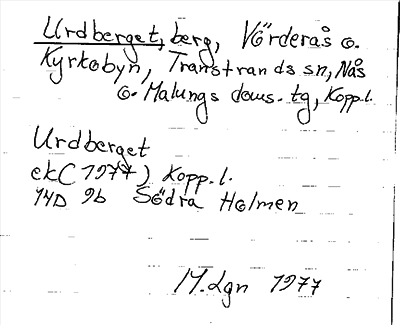 Urdberget, berg, Vörderås o.
Kyrkobyn, Transtrands sn, Nås
o. Malungs doms. tg, Kopp.l.
Urdberget
ek (1977) Kopp.l.
14D 9b Södra Holmen
M. Lgn 1977